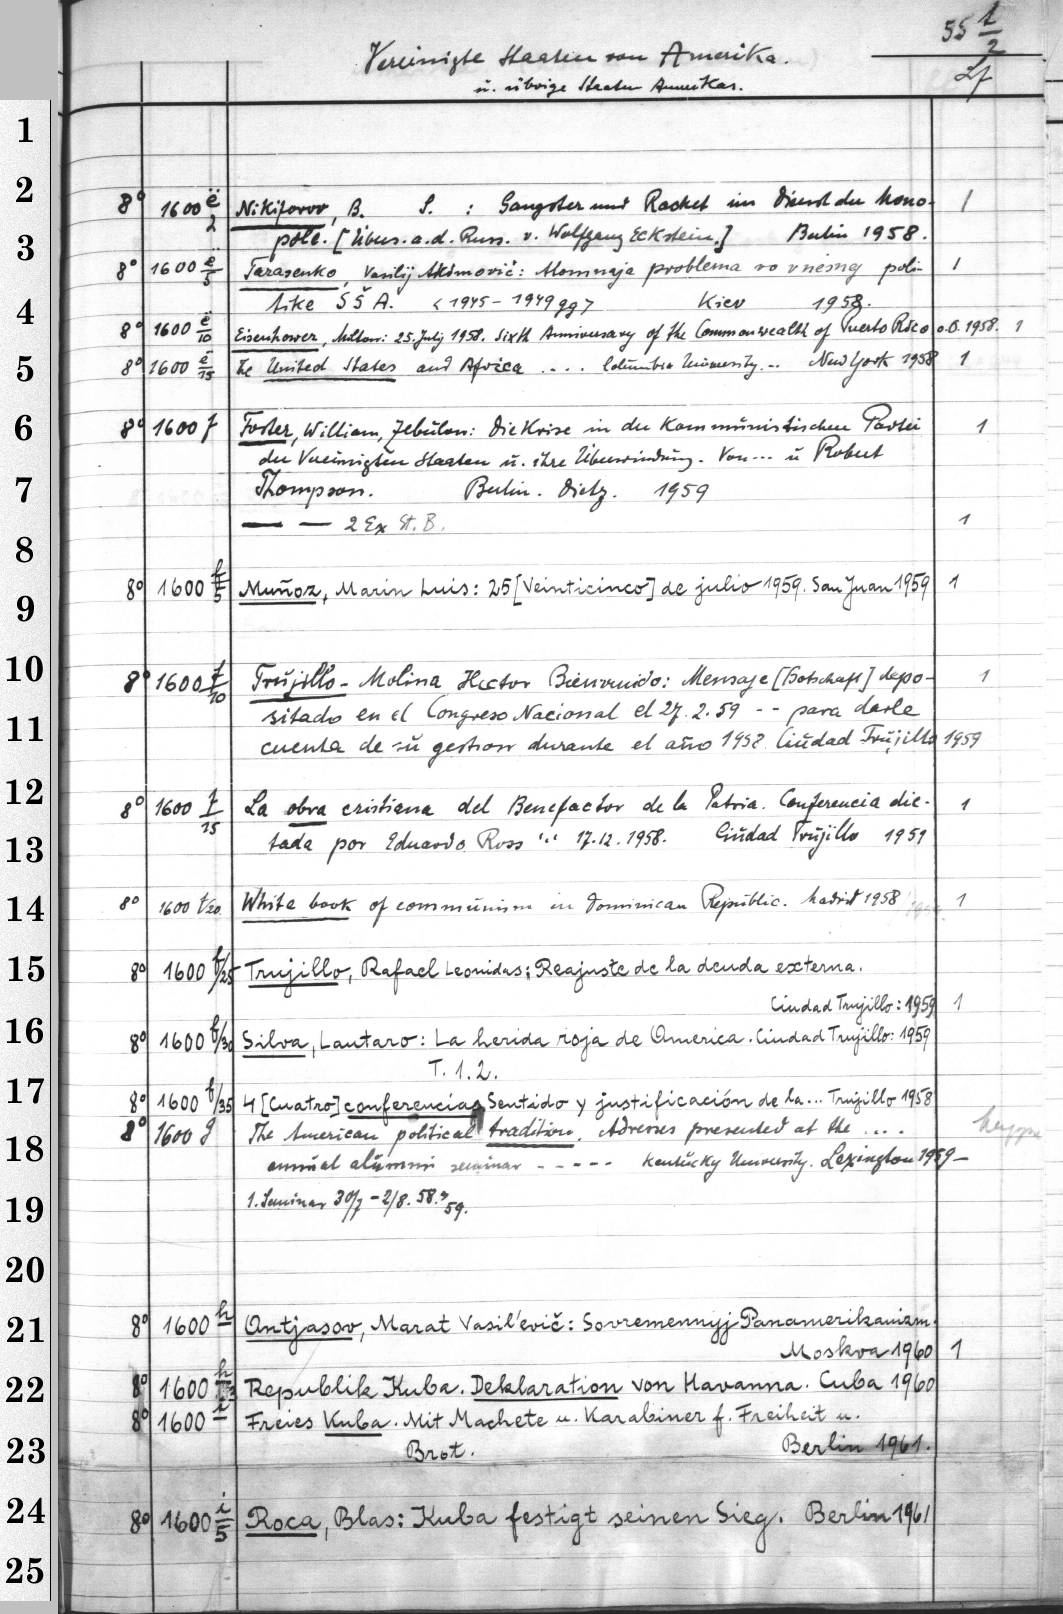 55 1/2
Vereinigte Staaten von Amerika.
u. übrige Staaten Amerikas.
Lf
1
2
8° 1600 ë/2 Nikiforov, B. S. : Gangster und Racket im Dienst der Mono- 1
3
pole. [Übers. a. d. Russ. v. Wolfgang Eckstein.] Berlin 1958.
8° 1600 ë/5 Tarasenko, Vasilij Akimovič: Atomnaja problema vo vnešnej poli- 1
4
tike SŠA. <1945-1949 gg> Kiev 1958.
8° 1600 ë/10 Eisenhower, Milton: 25. July 1958. Sixth Anniversary of the Commonwealth of Puerto Rico o.O. 1958. 1
5
8° 1600 ë/15 The United States and Africa .... Columbia University... New York 1958 1
6
8° 1600 f Foster, William, Zebulon: Die Krise in der Kommunistischen Partei 1
der Vereinigten Staaten u. ihre Überwindung. Von... u Robert
7
Thompson. Berlin. Dietz. 1959
— — 2 Ex St. B. 1
8
8° 1600 f/5 Muñoz, Marin Luis: 25 [Veinticinco] de julio 1959. San Juan 1959 1
9
10
8° 1600 f/10 Trujillo-Molina Hector Bienvenido: Mensaje [Botschaft] depo- 1
11
sitado en el Congreso Nacional el 27.2.59 -- para darle
cuenta de su gestion durante el año 1958. Ciudad Trujillo 1959
12
8° 1600 f/15 La obra cristiana del Benefactor de la Patria. Conferencia dic- 1
13
tada por Eduardo Ross ... 17.12.1958. Ciudad Trujillo 1959
14
8° 1600 f/20 White book of communism in Dominican Republic. Madrid 1958 1
15
8° 1600 f/25 Trujillo, Rafael Leonidas: Reajuste de la deuda externa.
Ciudad Trujillo: 1959 1
16
8° 1600 f/30 Silva, Lautaro: La herida roja de America. Ciudad Trujillo: 1959
T. 1.2.
17
8° 1600 f/35 4 [Cuatro] conferencias Sentido y justificación de la... Trujillo 1958
8° 1600 g The American political tradition. Adresses presented at the ....
18
annual alumni seminar ----- Kentucky University. Lexington 1959-
19
1. Seminar 30/7 - 2/8. 58. 59.
20
21
8° 1600 h Antjasov, Marat Vasil'evič: Sovremennyj Panamerikanizm.
Moskva 1960 1
22
8° 1600 h Republik Kuba. Deklaration von Havanna. Cuba 1960
8° 1600 i Freies Kuba. Mit Machete u. Karabiner f. Freiheit u.
23
Brot. Berlin 1961.
24
8° 1600 i/5 Roca, Blas: Kuba festigt seinen Sieg. Berlin 1961
25